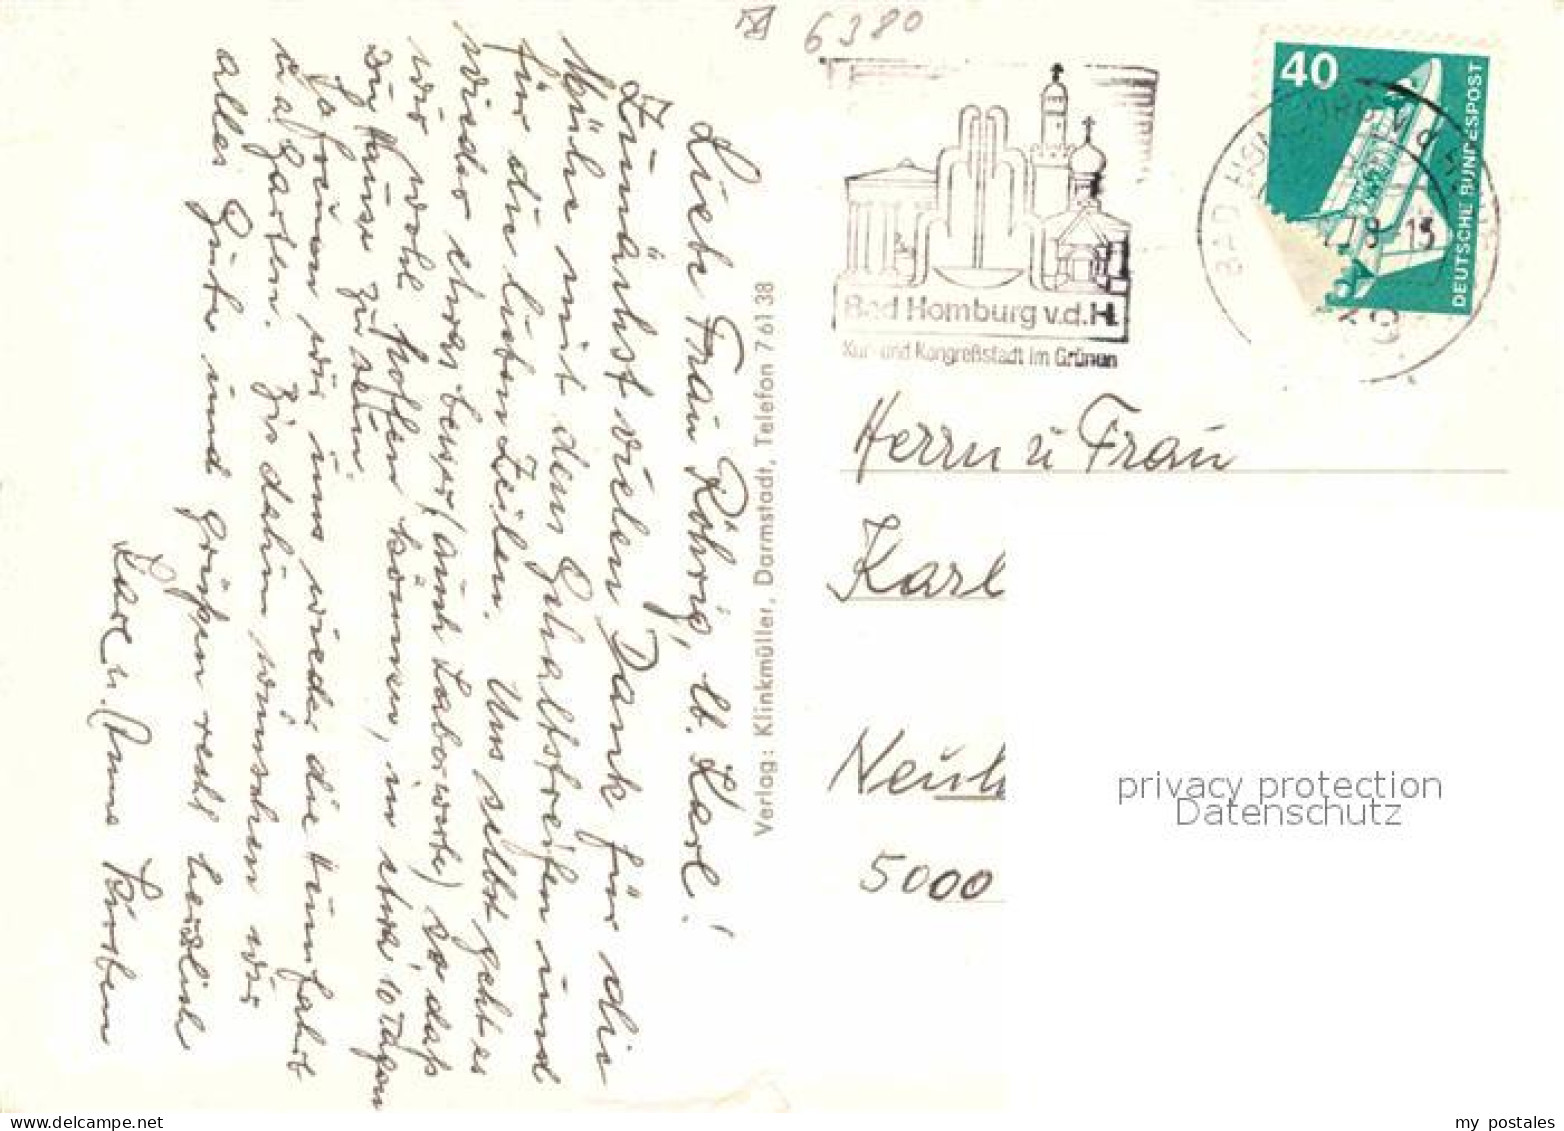 6380
40
DEUTSCHE BUNDESPOST
BAD HOMBURG v.d.H.
15
Bad Homburg v.d.H.
Kur- und Kongreßstadt im Grünen
Liebe Frau Röhrig, lb. Karl!
Zunächst vielen Dank für die
Mühe mit dem Gehaltsstreifen und
für die lieben Zeilen. Uns selbst geht es
wieder etwas besser, (auch Laborwerte) so daß
wir wohl hoffen können, in etwa 10 Tagen
zu Hause zu sein.
So freuen wir uns wieder, die
u. a. Garten. Bis dahin wünschen wir
alles Gute und grüßen recht herzlich
Karl u. Anna
Verlag: Klinkmüller, Darmstadt, Telefon 7 61 38
Herrn u Frau
Karl
Neuh
5000
privacy protection
Datenschutz
www.delcampe.net
my_postales